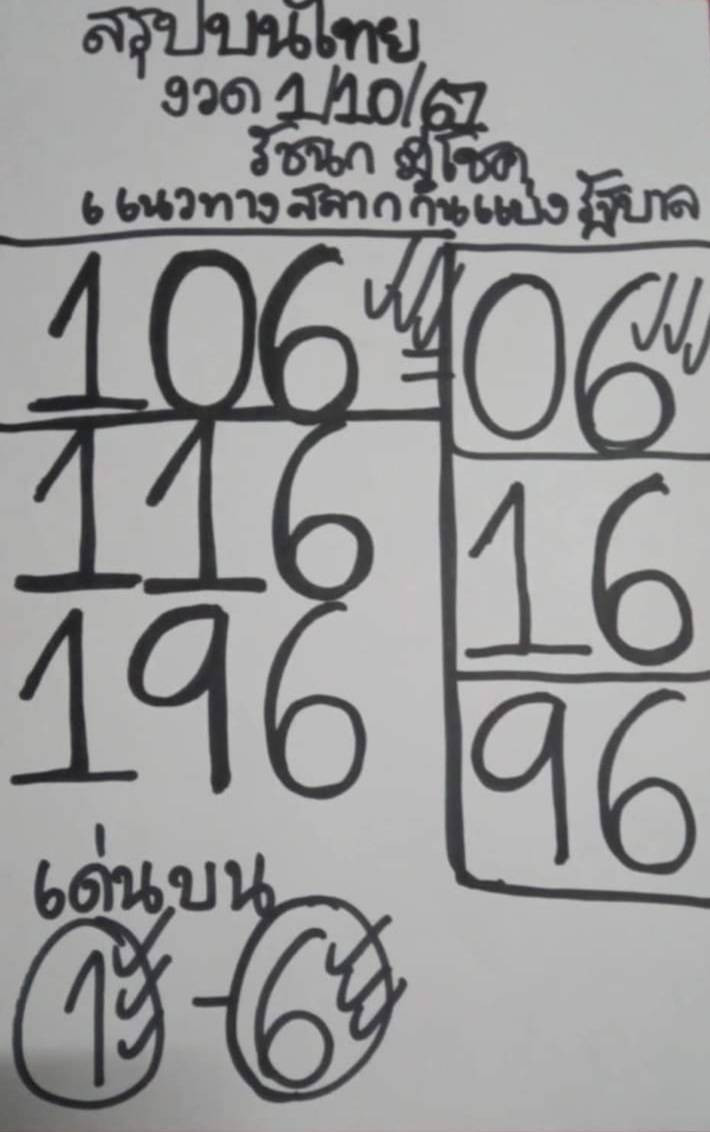 สรุปบนไทย
งวด 1/10/67
รัชนก ผู้โชค
แนวทางสลากกินแบ่ง รัฐบาล
106 06
116 16
196 96
เด่นบน
1 - 6